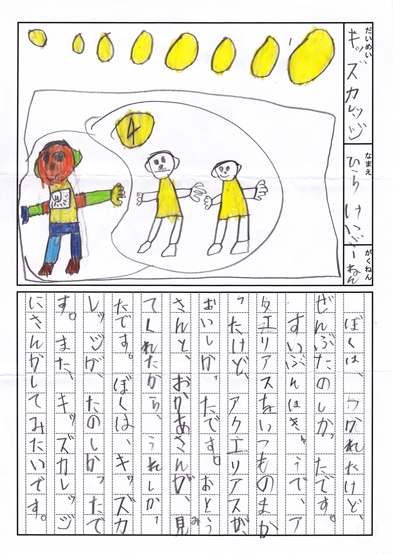 だいめい
キッズカレッジ
なまえ
ひら けいご
がくねん
一ねん
4
黒
ぼくは、つかれたけど、
ぜんぶたのしかったです。
すいぶんほきゅうで、ア
クエリアスをいつものまか
ったけど、アクエリアスが、
おいしかったです。おとう
さんと、おかあさんが、見
み
てくれたから、うれしかっ
たです。ぼくは、キッズカ
レッジが、たのしかったで
す。また、キッズカレッジ
にさんかしてみたいです。